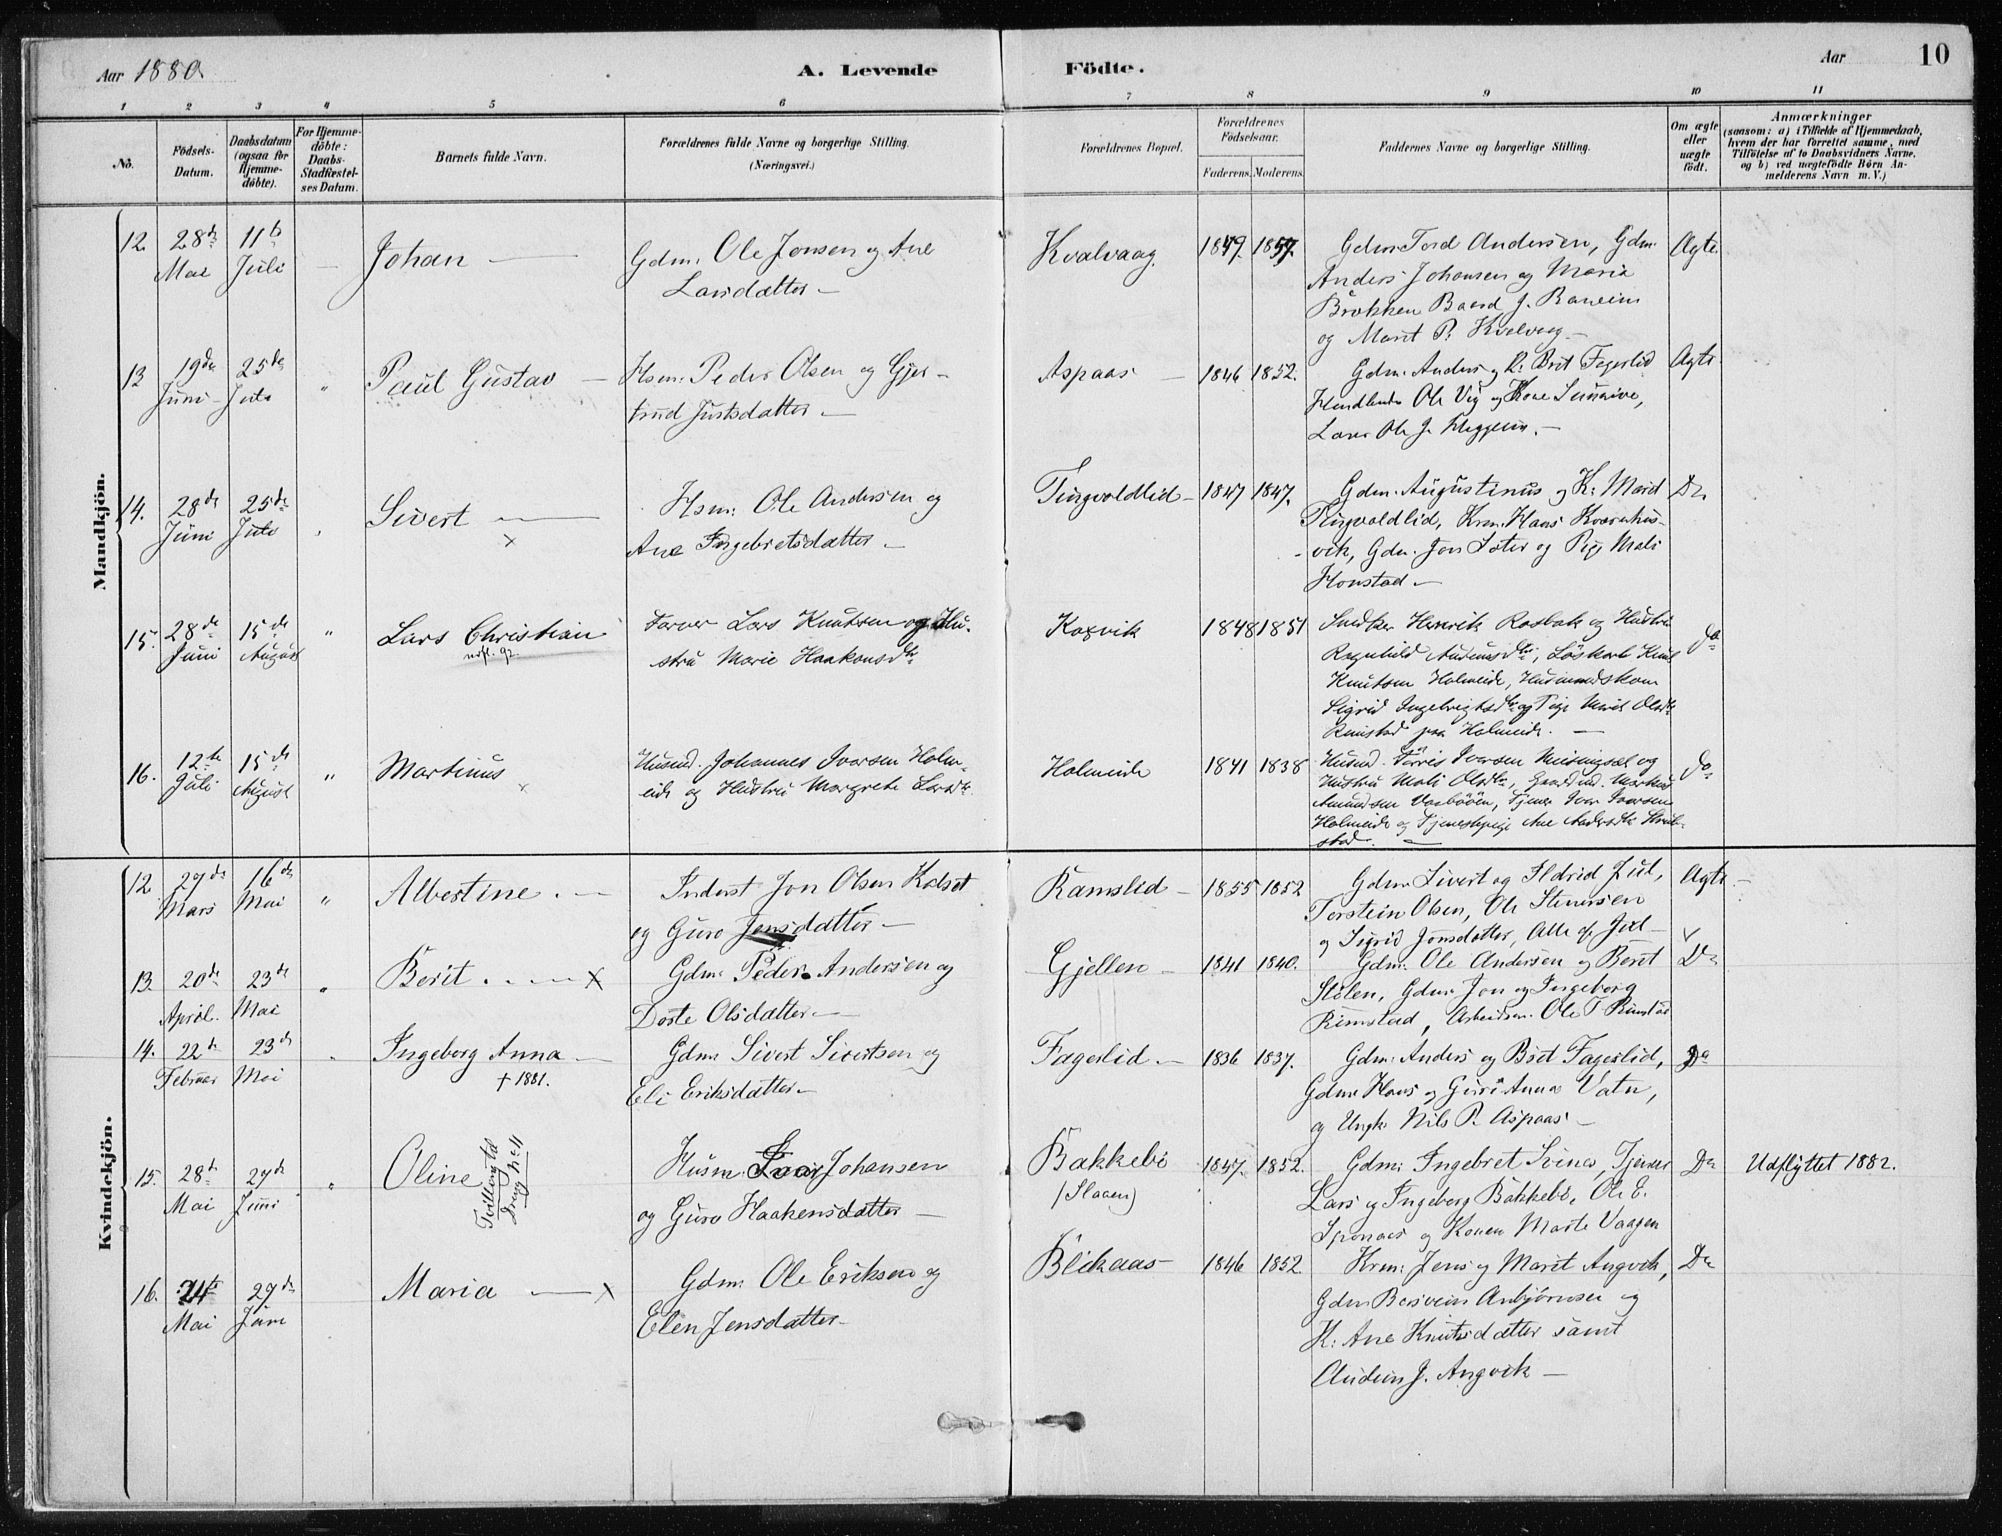 Aar 1880.
A. Levende
Födte.
Aar
10
1 2 3 4 5 6 7 8 9 10 11
No.
Födsels-
Datum.
Daabsdatum
(ogsaa for
Hjemme-
döbte).
For Hjemme-
döbte:
Daabs-
Stadfæstel-
ses Datum.
Barnets fulde Navn.
Forældrenes fulde Navne og borgerlige Stilling.
(Næringsvei.)
Forældrenes Bopæl.
Forældrenes
Födselsaar.
Faderens. Moderens.
Faddernes Navne og borgerlige Stilling.
Om ægte
eller
uægte
födt.
Anmærkninger
(saasom: a) i Tilfælde af Hjemmedaab,
hvem der har forrettet samme, med
Tilföielse af to Daabsvidners Navne,
og b) ved uægtefödte Börn An-
melderens Navn m. V.)
Mandkjön.
12. 28de Mai 11te Juli — Johan —
Gdm: Ole Jonsen og Ane
Larsdatter —
Kvalvaag. 1849. 1857.
Gdm: Tord Andersen, Gdm.
Anders Johansen og Maria
Brokken Baard J.
og Marit P. Kvalvaag —
Ægte.
13 19de Juni 25de Juli " Paul Gustav —
Hsm: Peder Olsen og Gjer-
trud Justsdatter —
Aspaas — 1846 1852.
Gdm. Anders og K: Brit Fagerlid
Ole Vig og Kone
Ole J.
Ægte
14. 28de Juni 25de Juli " Sivert — x
Hsm: Ole Andersen og
Ane Ingebretsdatter —
Tingvoldlid — 1847 1847.
Gdm. Augustinus og K: Marit
Tingvoldlid, Krm. Hans Kvernhus-
vik, Gdm. Jon Sæter og Pig. Mali
Honstad —
Do
15. 28de Juni 15de August " Lars Christian
udfl. 92.
Farver Lars Knutsen og Hu-
stru Marie Haakonsdtr
Koxvik 1848 1851
Henrik Rosbak og Hustru
Ragnhild Löskarl Knut
Knutsen Holmeide, Husmandskone
Sigrid Ingebrigtsdtr og Pige Marit Olsdtr
Rimstad paa Holmeide. —
do
16. 12te Juli 15de August " Martinus x
Husmd. Johannes Iversen Holm-
eide og Hustru Margrete Larsdtr.
Holmeide 1841 1838
Husmd. Iversen og
Hustru Mali Olsdtr, Gaardmd. Markus
Amundsen Vaabøen, Tjener Iver Iversen
Holmeide og Tjenestepige Ane Andersdtr
stad. —
do
Kvindekjön.
12. 29de Mars 16de Mai " Albertine. —
Inderst Jon Olsen Kolset
og Guro Jonsdatter —
Ramslid — 1855 1852
Gdm: Sivert og Ildrid Jul,
Torstein Olsen, Ole Stenersen
og Sigrid Jonsdatter, Alle af Jul —
Ægte —
13. 20de April. 23de Mai " Berit. — x
Gdm: Peder Andersen og
Dorte Olsdatter —
Gjellen — 1841 1840.
Gdm: Ole Andersen og Beret
Stölen, Gdm: Jon og Ingeborg
Rimstad, Arbeidsm. Ole T. Rimstad
Do
14. 22de Februar 23de Mai " Ingeborg Anna —
† 1881.
Gdm: Sivert Sivertsen og
Eli Eriksdatter —
Fagerlid. — 1836 1837.
Gdm: Anders og Brit Fagerlid,
Gdm Hans og Guri Anna Vatn,
og Ungk: Nils P. Aspaas —
Do
15. 28de Mai 27de Juni " Oline
Tvilling til
Dreng No 11
Husm. Lars Johansen
og Guro Haakensdatter —
Bakkebö
(Slaaen) 1847. 1852.
Gdm: Ingebret Svinas, Tjener
Lars og Ingeborg Bakkebö, Ole E.
og Konen Marte Vaagen
Do Udflyttet 1882.
16. 24de Mai 29de Juni Maria — x
Gdm: Ole Eriksen og
Elen Jensdatter —
Blekaas — 1846 1852
Krm: Jens og Marit Angvik,
Gdm Bersvein Anbjörnsen og
K: Ane Knutsdatter samt
Audun J. Angvik —
Do